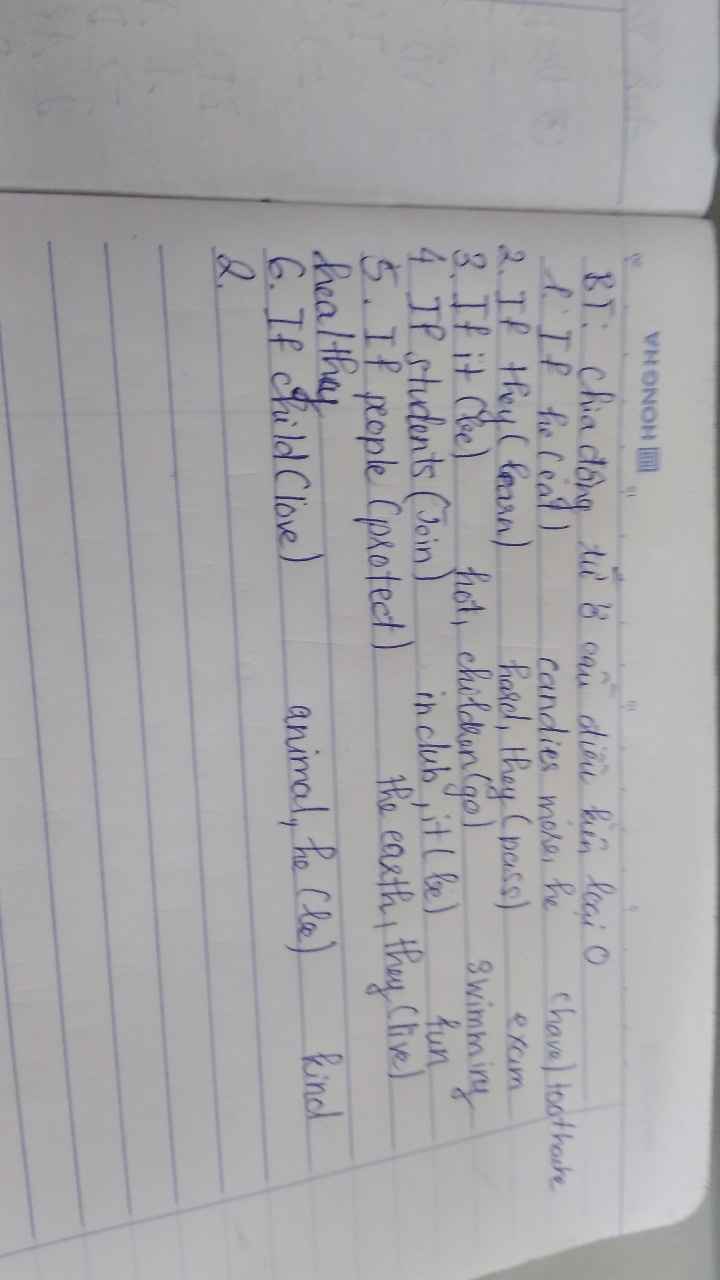 HONG HA
BT: Chia động từ ở câu điều kiện loại 0
1. If he (eat) candies more, he (have) toothache
2. If they (learn) hard, they (pass) exam
3. If it (be) hot, children (go) swimming
4. If students (Join) in club, it (be) fun
5. If people (protect) the earth, they (live)
healthy
6. If child (love) animal, he (be) kind
2.